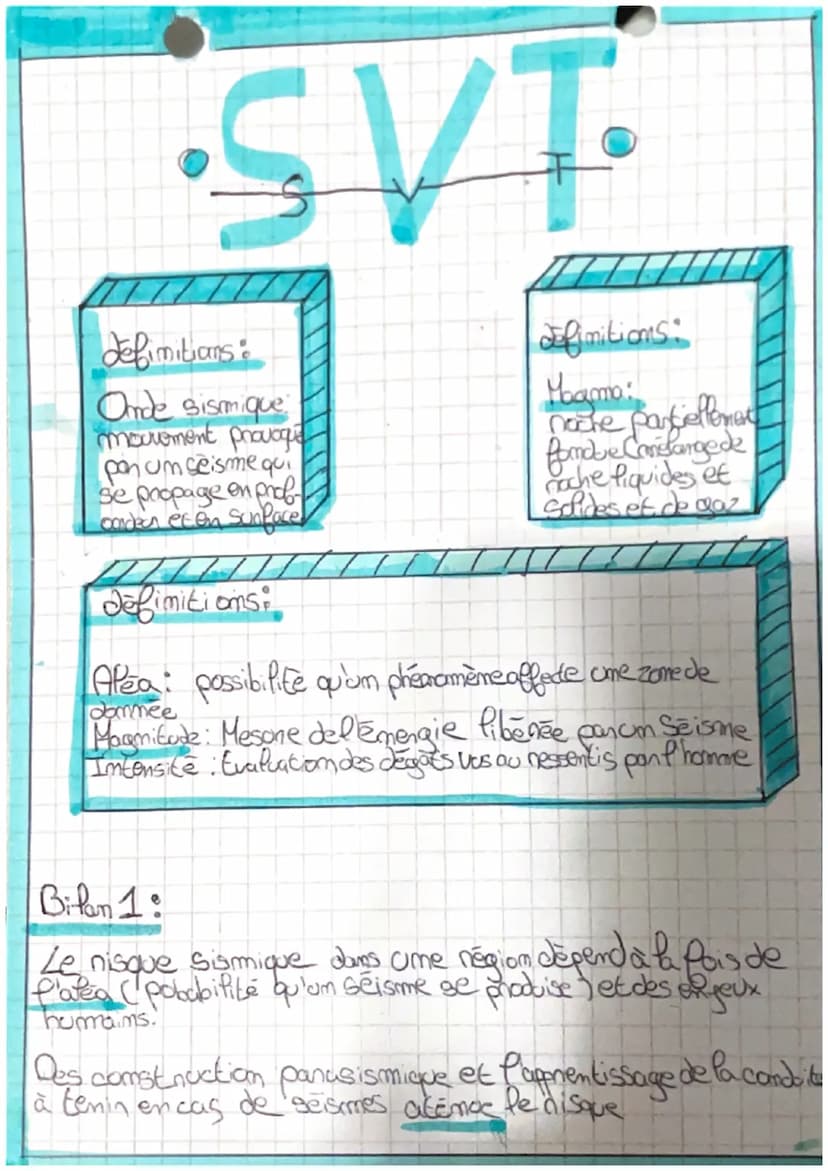 SVT
S V T
définitions:
Onde sismique:
mouvement provoqué
par un séisme qui
se propage en prof-
ondeur et en surface
définitions:
Magma:
roche partiellement
fondue (mélange de
roche liquides et
solides et de gaz
définitions:
Aléa: possibilité qu'un phénomène affecte une zone
donnée
Magnitude: Mesure de l'énergie libérée par un séisme
Intensité: Evaluation des dégats vus ou ressentis par l'homme
Bilan 1:
Le risque sismique dans une région dépend à la fois de
l'aléa (pobabilité qu'un séisme se produise) et des enjeux
humains.
Des construction parasismique et l'apprentissage de la conduite
à tenir en cas de séismes aténue le risque